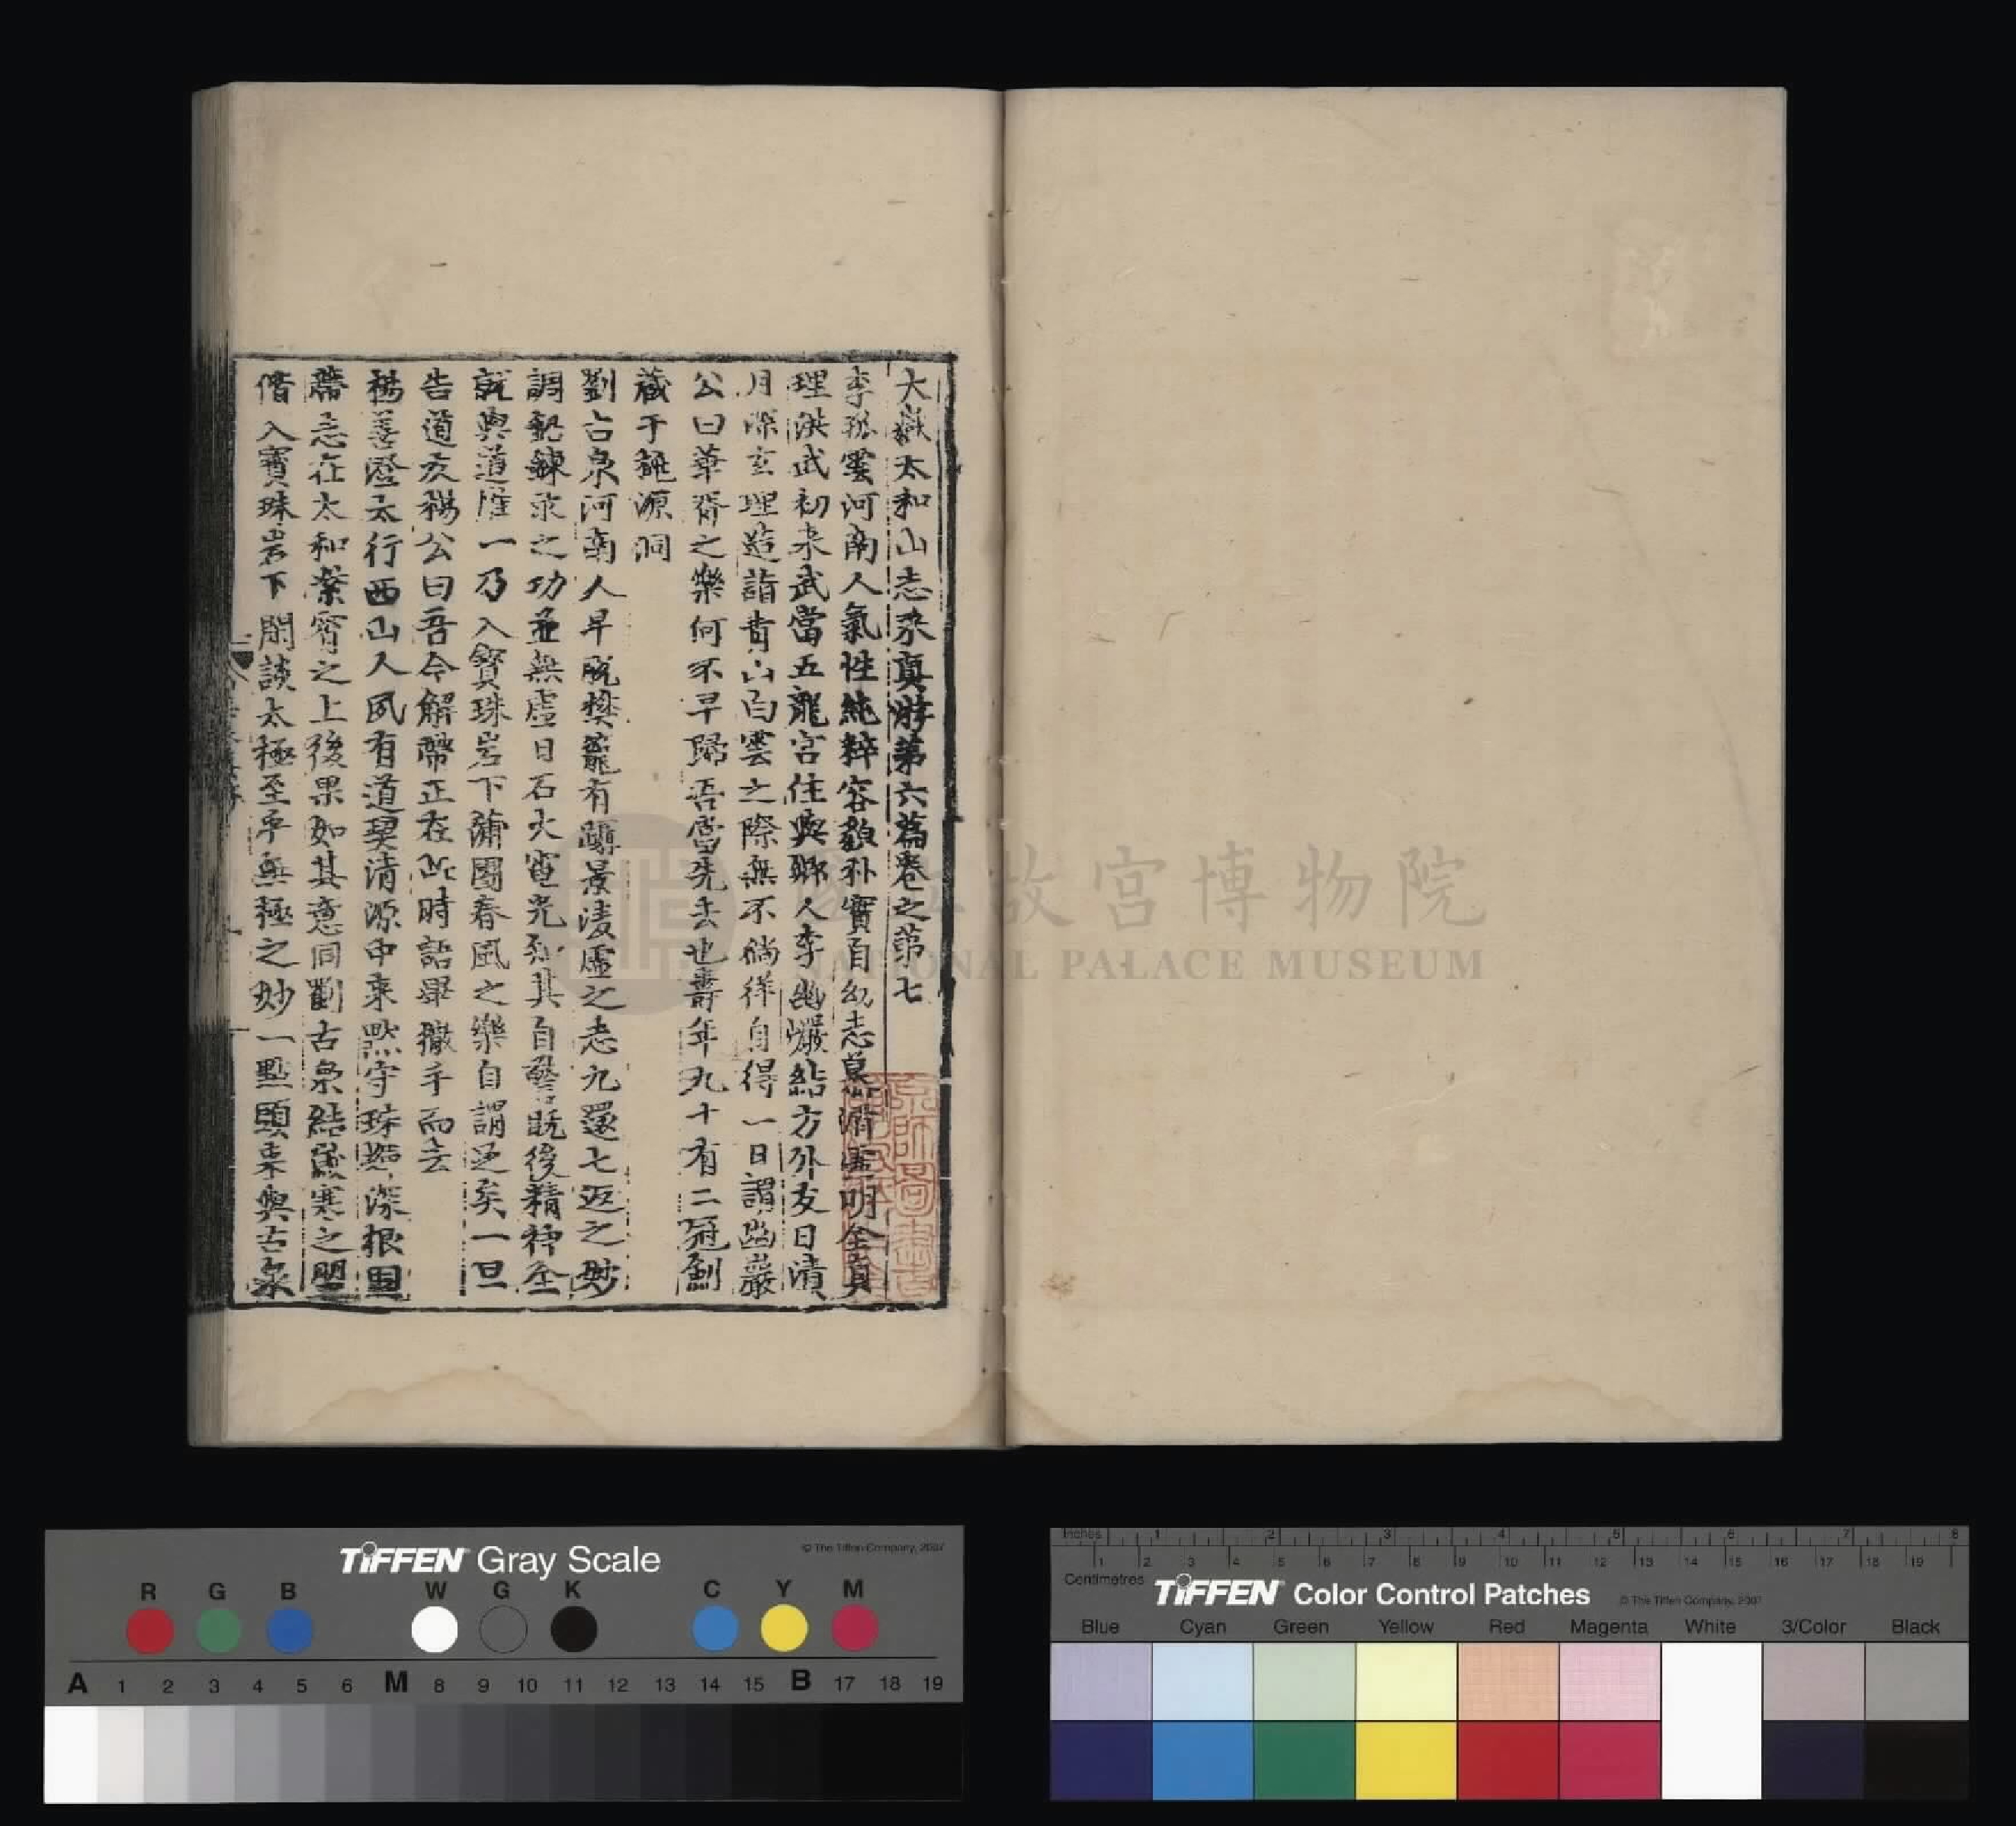 大嶽太和山志采真游第六篇卷之第七
李孤雲河南人氣性純粹容貌朴實自幼志慕清虛明全真
理洪武初来武當五龍宮住與鄉人李幽巖結方外友日漬
月深玄理造詣青山白雲之際無不徜徉自得一日謂幽巖
公曰華胥之樂何不早歸吾當先去也壽年九十有二冠劍
藏于桃源洞
劉古泉河南人早脫樊籠有躡景凌虛之志九還七返之妙
調鈆鍊汞之功並無虛日石火電光到其自警既後精神全
就與道惟一乃入寶珠岩下蒲團春風之樂自謂足矣一旦
告道友楊公曰吾今解帶正在此時語畢撒手而去
楊善澄太行西山人夙有道契清源中来默守珠躔深根固
蔕志在太和紫霄之上後果如其意同劉古泉結歲寒之盟
偕入寶珠岩下閒談太極至乎無極之妙一點頭来與古泉
國立故宮博物院
NATIONAL PALACE MUSEUM
京師圖書
TIFFEN Gray Scale
© The Tiffen Company, 2007
R G B W G K C Y M
A 1 2 3 4 5 6 M 8 9 10 11 12 13 14 15 B 17 18 19
Inches 1 2 3 4 5 6 7 8
1 2 3 4 5 6 7 8 9 10 11 12 13 14 15 16 17 18 19
Centimetres
TIFFEN Color Control Patches
© The Tiffen Company, 2007
Blue Cyan Green Yellow Red Magenta White 3/Color Black